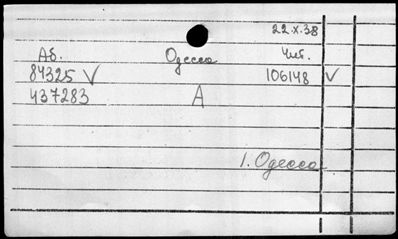 22.X.38
Аб. Одесса Чит.
84325 V 106148 V
437283 А
1. Одесса